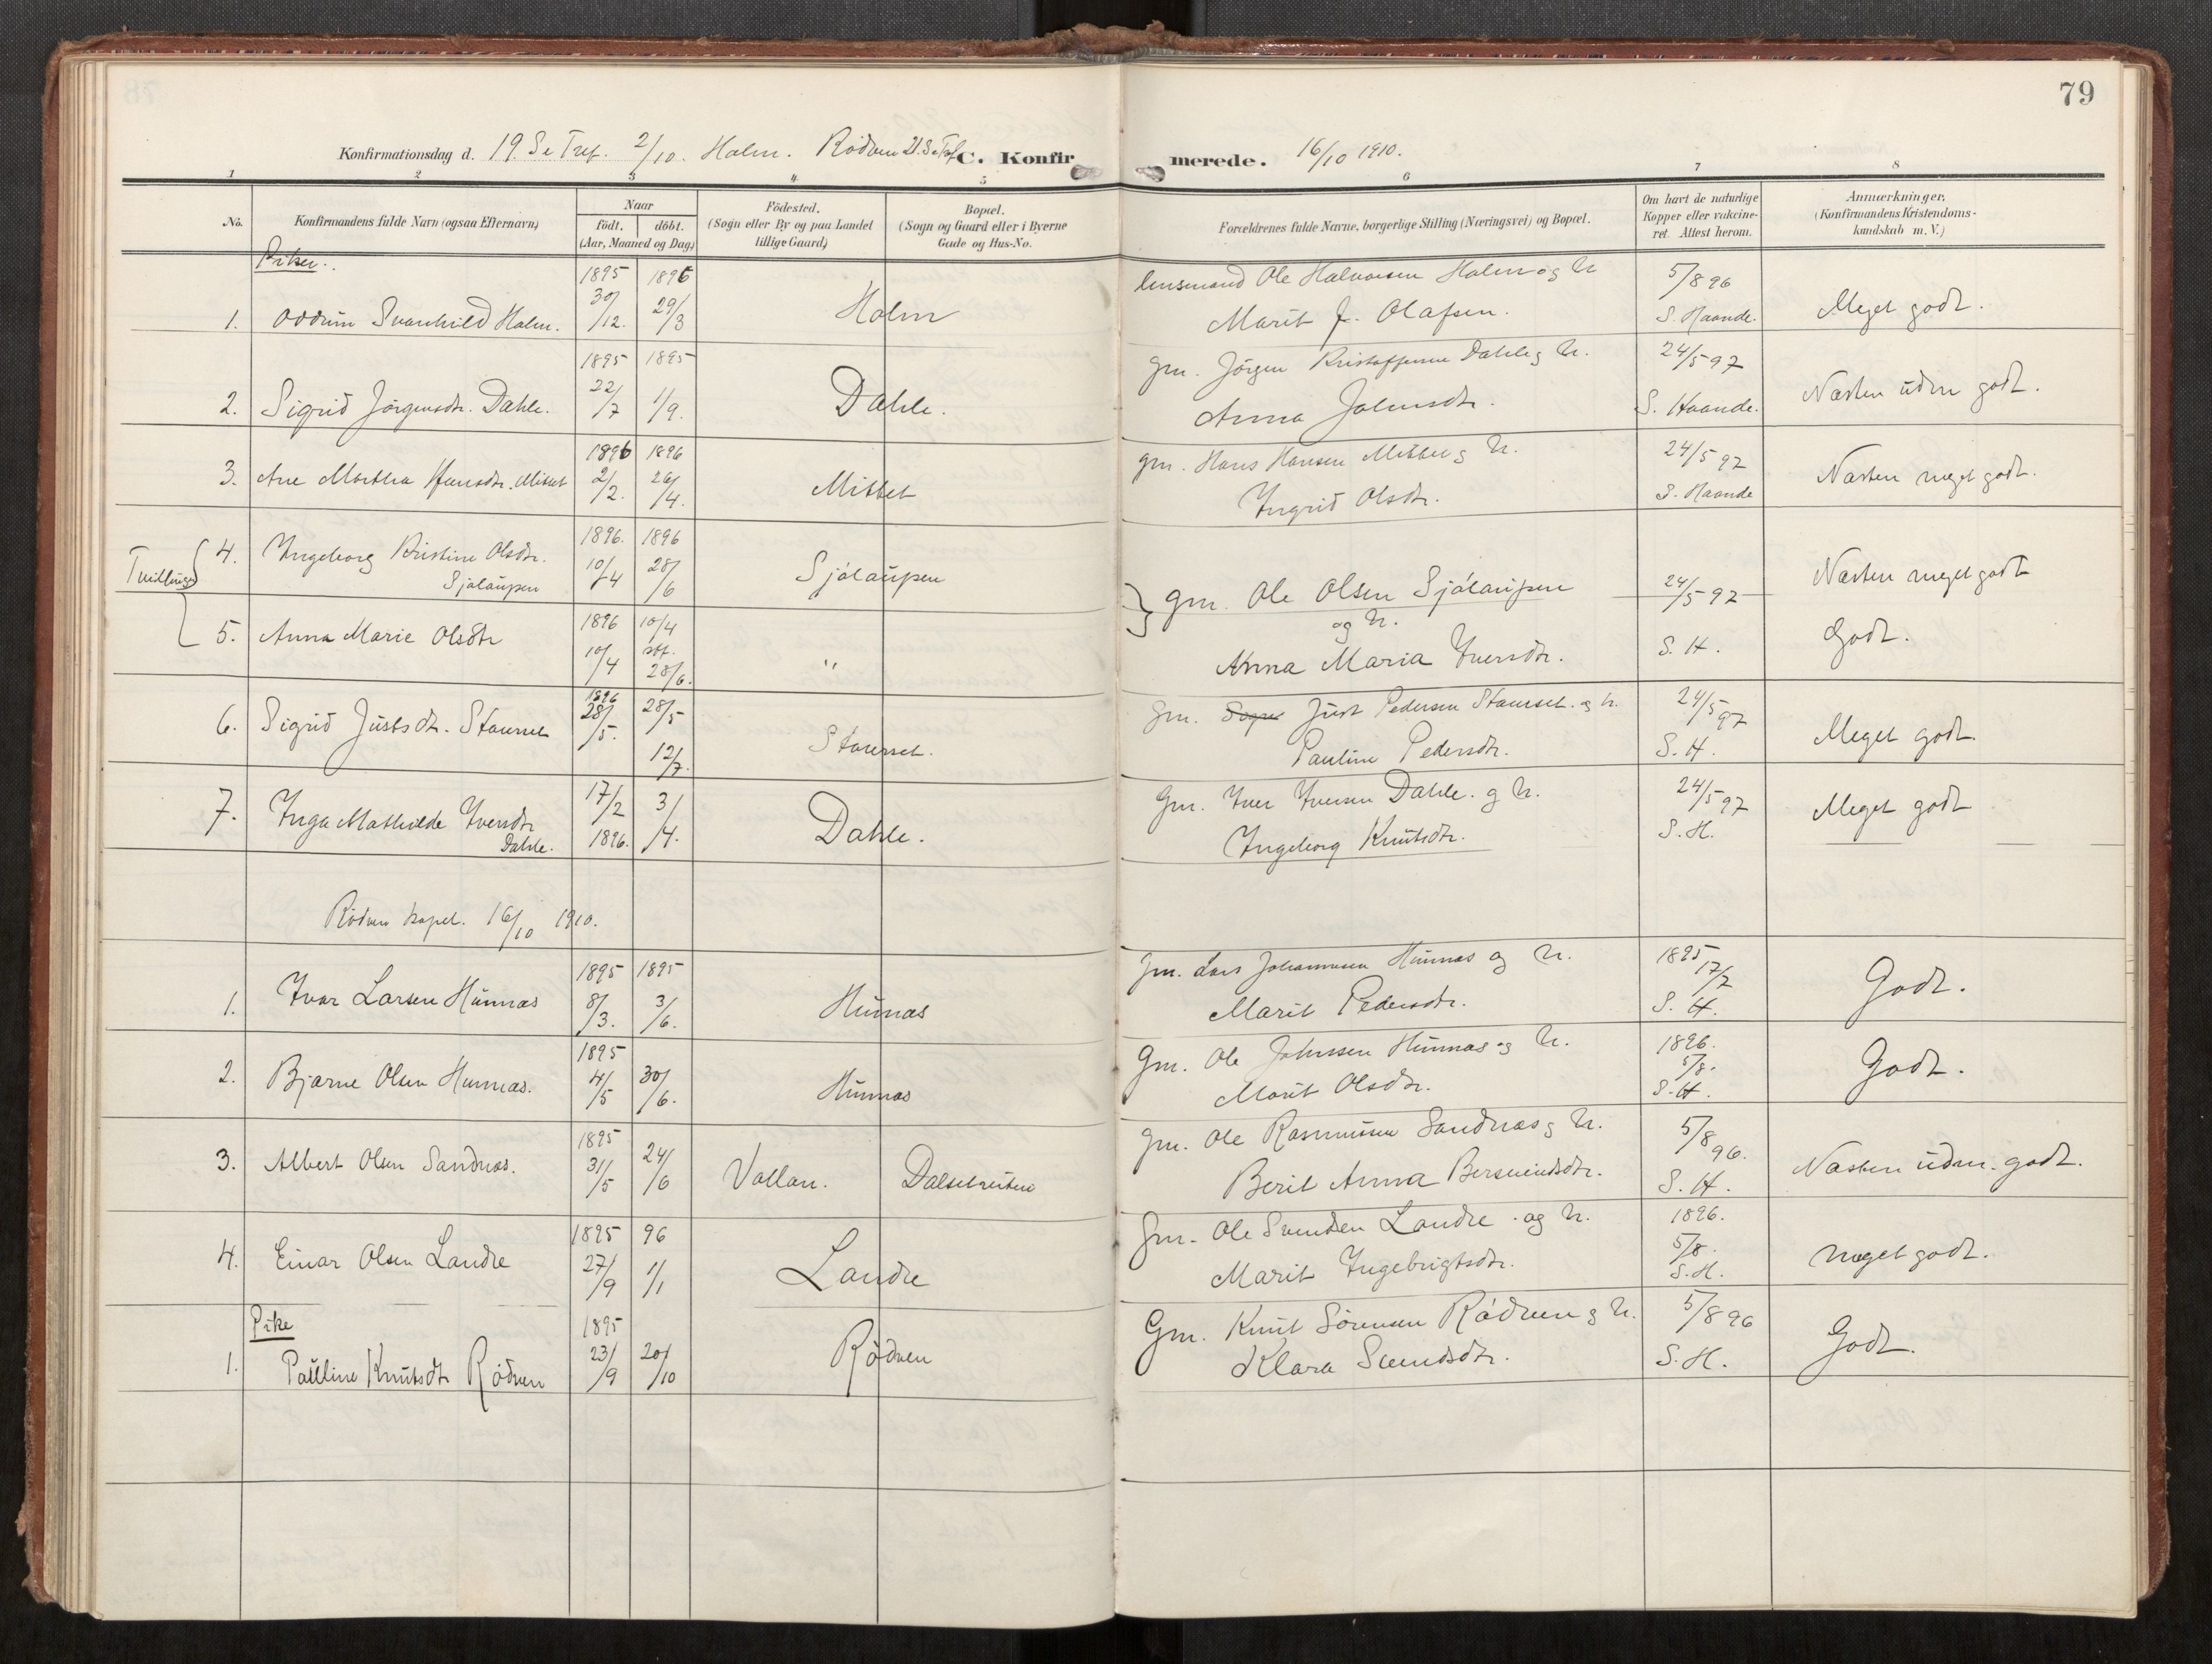 79
Konfirmationsdag d. 19. S e Tref. 2/10. Holm. Rödven 21. S e Tref C. Konfirmerede. 16/10 1910.
1 2 3 4 5 6 7 8
No. Konfirmandens fulde Navn (ogsaa Efternavn) Naar födt. döbt. (Aar, Maaned og Dag) Födested. (Sogn eller By og paa Landet tillige Gaard) Bopæl. (Sogn og Gaard eller i Byerne Gade og Hus-No. Forældrenes fulde Navne, borgerlige Stilling (Næringsvei) og Bopæl. Om havt de naturlige Kopper eller vakcineret. Attest herom. Anmærkninger. (Konfirmandens Kristendomskundskab m. V.)
Piker.
1. Oddrun Svanhild Holm. 1895 30/12. 1896 29/3 Holm lensmand Ole Halvorsen Holm og h. Marit J. Olafsen. 5/8 96 S. Haande. Meget godt.
2. Sigrid Jörgensdtr. Dahle. 1895 22/7 1895 1/9. Dahle. Gm. Jörgen Kristoffersen Dahle og h. Anna Johnsdtr. 24/5 97 S. Haande. Næsten udm godt.
3. Ane Martha Hansdtr. Mittet 1896 2/2. 1896 26/4. Mittet gm. Hans Hansen Mittet og h. Ingrid Olsdtr. 24/5 97 S. Haande Næsten meget godt.
Tvillinger
4. Ingeborg Kristine Olsdtr. Sjölaupen 1896. 10/4 1896 28/6 Sjölaupen gm. Ole Olsen Sjölaupen og h. Anna Maria Iversdtr. 24/5 97 S. H. Næsten meget godt
5. Anna Marie Olsdtr 1896 10/4 10/4 stf. 28/6. " Godt.
6. Sigrid Justsdtr. Staurset 1896 28/5. 28/5 12/7. Staurset. Gm. Just Pedersen Staurset. og h. Pauline Pedersdtr. 24/5 97 S. H. Meget godt.
7. Inga Mathilde Iversdtr Dahle. 17/2 1896. 3/4. Dahle. Gm. Iver Iversen Dahle. og h. Ingeborg Knutsdtr. 24/5 97 S. H. Meget godt
Rödven kapel. 16/10 1910.
1. Ivar Larsen Hunnæs 1895 8/3. 1895 3/6. Hunnæs Gm. Lars Johannesen Hunnæs og h. Marit Pedersdtr. 1895 17/7 S. H. Godt.
2. Bjarne Olsen Hunnæs. 1895 4/5 30/6. Hunnæs Gm. Ole Johnsen Hunnæs og h. Marit Olsdtr. 1896. 5/8. S. H. Godt.
3. Albert Olsen Sandnæs. 1895 31/5 24/6 Vollan. Dalsetreiten gm. Ole Rasmussen Sandnæs og h. Berit Anna Bersvendsdtr. 5/8 96. S. H. Næsten udm. godt.
4. Einar Olsen Landre 1895 27/9 96 1/1 Landre Gm. Ole Svendsen Landre. og h. Marit Ingebrigtsdtr. 1896. 5/8. S. H. meget godt.
Pike
1. Pauline Knutsdtr Rödven 1895 23/9 20/10 Rödven Gm. Knut Sörensen Rödven og h. Klara Svendsdtr. 5/8 96 S. H. Godt.